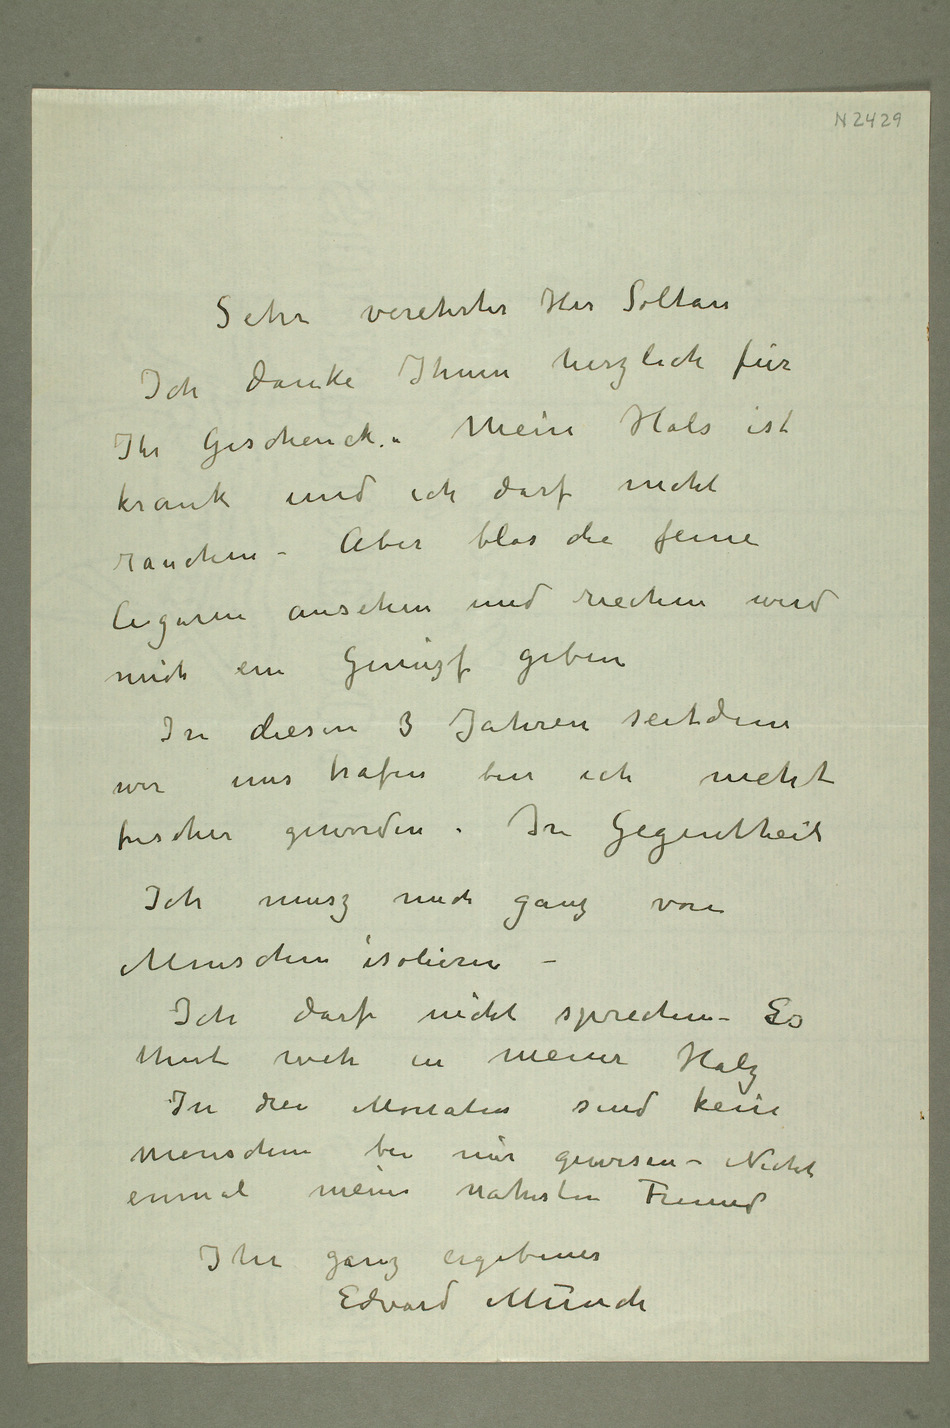 N 2429
Sehr verehrter Herr Soltau
Ich danke Ihnen herzlich für
Ihr Geschenck. – Mein Hals ist
krank und ich darf nicht
rauchen – Aber blos die feine
Cigaren ansehen und riechen wird
mich ein Genuzs geben
In diesen 3 Jahren seitdem
wir uns trafen bin ich nicht
frischer geworden – In Gegentheil
Ich musz mich ganz von
Menschen isolieren –
Ich darf nicht sprechen – Es
thut weh in meiner Halz
In drei Monaten sind keine
menschen bei mir gewesen – Nicht
einmal meine nähesten Freund
Ihr ganz ergebener
Edvard Munch